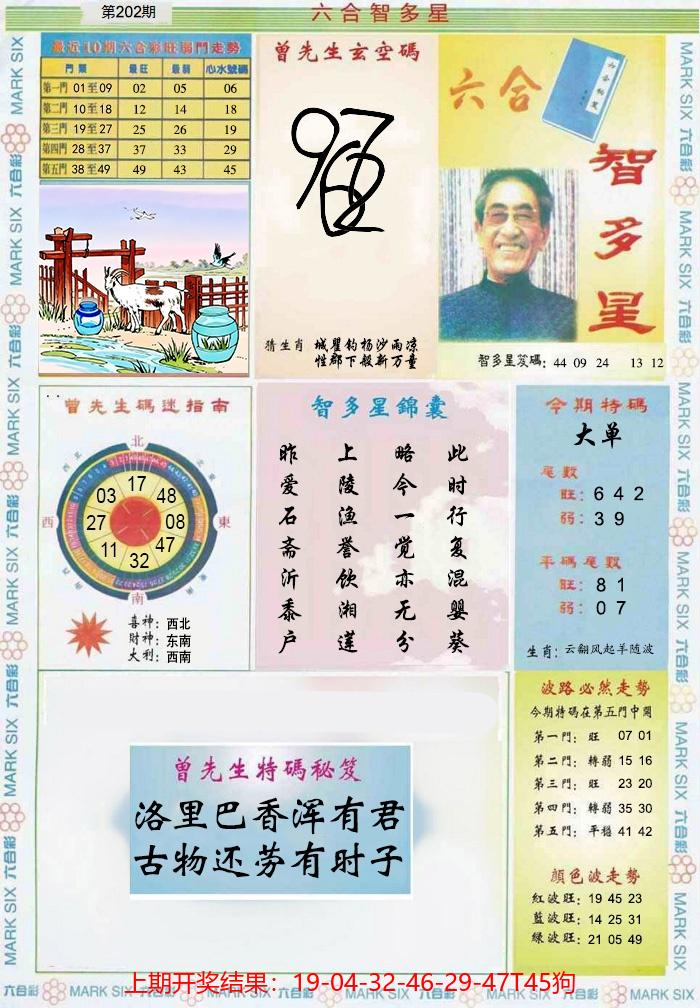 第202期
六合智多星
最近10期六合彩旺弱門走勢
門類 最旺 最弱 心水號碼
第一門 01至09 02 05 06
第二門 10至18 12 14 18
第三門 19至27 25 26 19
第四門 28至37 37 33 29
第五門 38至49 49 43 45
曾先生玄空碼
猜生肖 城瞿钓杨沙雨凉
性郡下般新万童
六合
智多星
智多星笈碼: 44 09 24 13 12
曾先生碼迷指南
北
西
東
南
17
48
08
47
32
11
27
03
喜神: 西北
财神: 东南
大利: 西南
智多星錦囊
昨 上 略 此
爱 陵 今 时
石 渔 一 行
斋 誉 觉 复
沂 飲 亦 混
黍 湘 无 婴
户 莲 分 葵
今期特碼
大单
尾數
旺: 6 4 2
弱: 3 9
平碼尾數
旺: 8 1
弱: 0 7
生肖: 云翻风起羊随波
曾先生特碼秘笈
洛里巴香浑有君
古物还劳有时子
波路必然走勢
今期特碼在第五門中開
第一門: 旺 07 01
第二門: 轉弱 15 16
第三門: 旺 23 20
第四門: 轉弱 35 30
第五門: 平穩 41 42
顏色波走勢
红波旺: 19 45 23
蓝波旺: 14 25 31
绿波旺: 21 05 49
上期开奖结果：19-04-32-46-29-47T45狗
六合彩 MARK SIX 六合彩 MARK SIX 六合彩 MARK SIX 六合彩 MARK SIX 六合彩